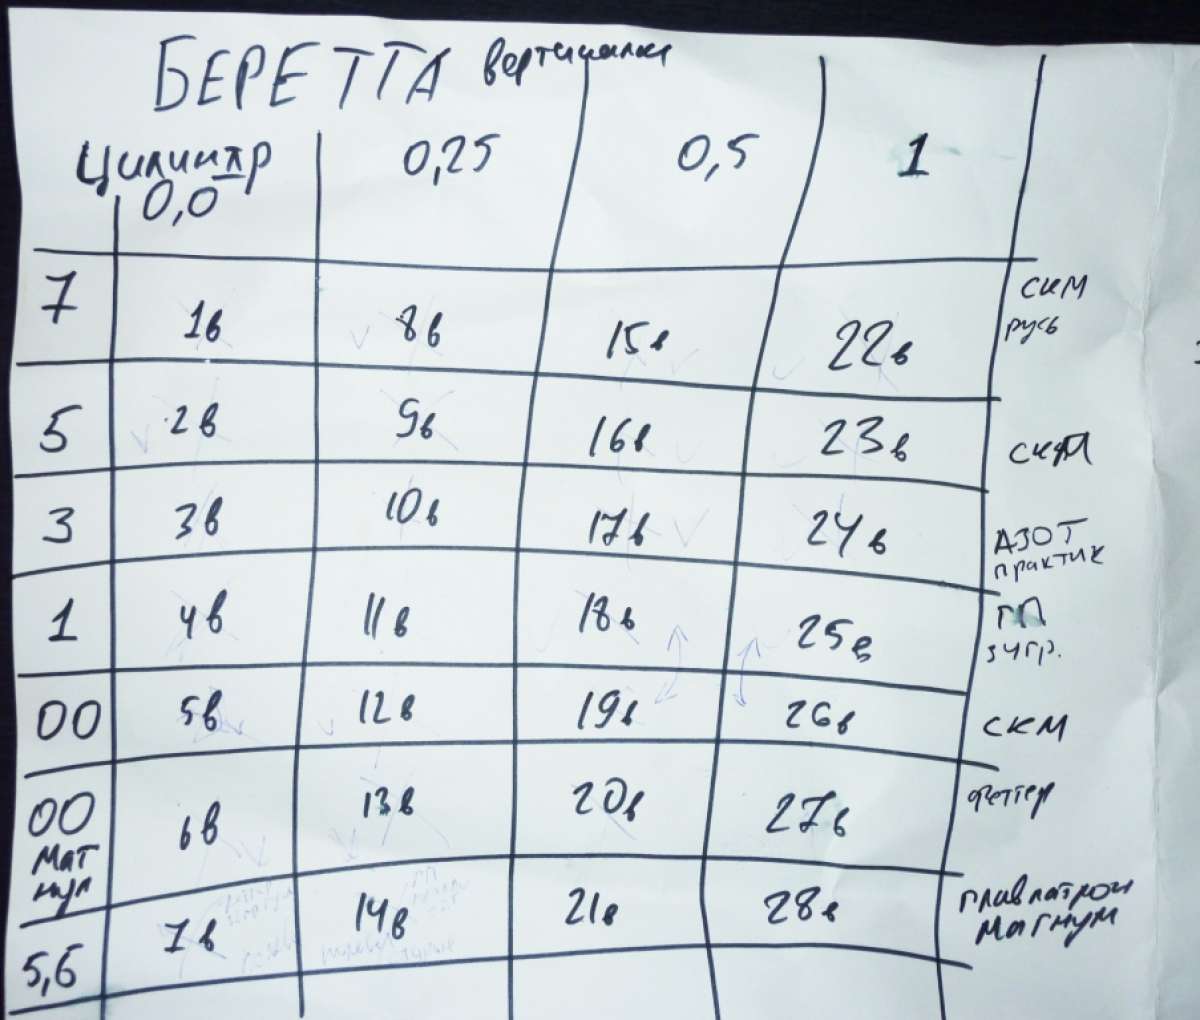 БЕРЕТТА вертикалки
Цилиндр 0,25 0,5 1
0,0
7 1в 8в 15в 22в СКМ
русь
5 2в 9в 16в 23в СКМ
3 3в 10в 17в 24в АЗОТ
практик
1 4в 11в 18в 25в ГП
34гр.
00 5в 12в 19в 26в СКМ
00 6в 13в 20в 27в феттер
Маг
нум
5,6 7в 14в 21в 28в главпатрон
Магнум